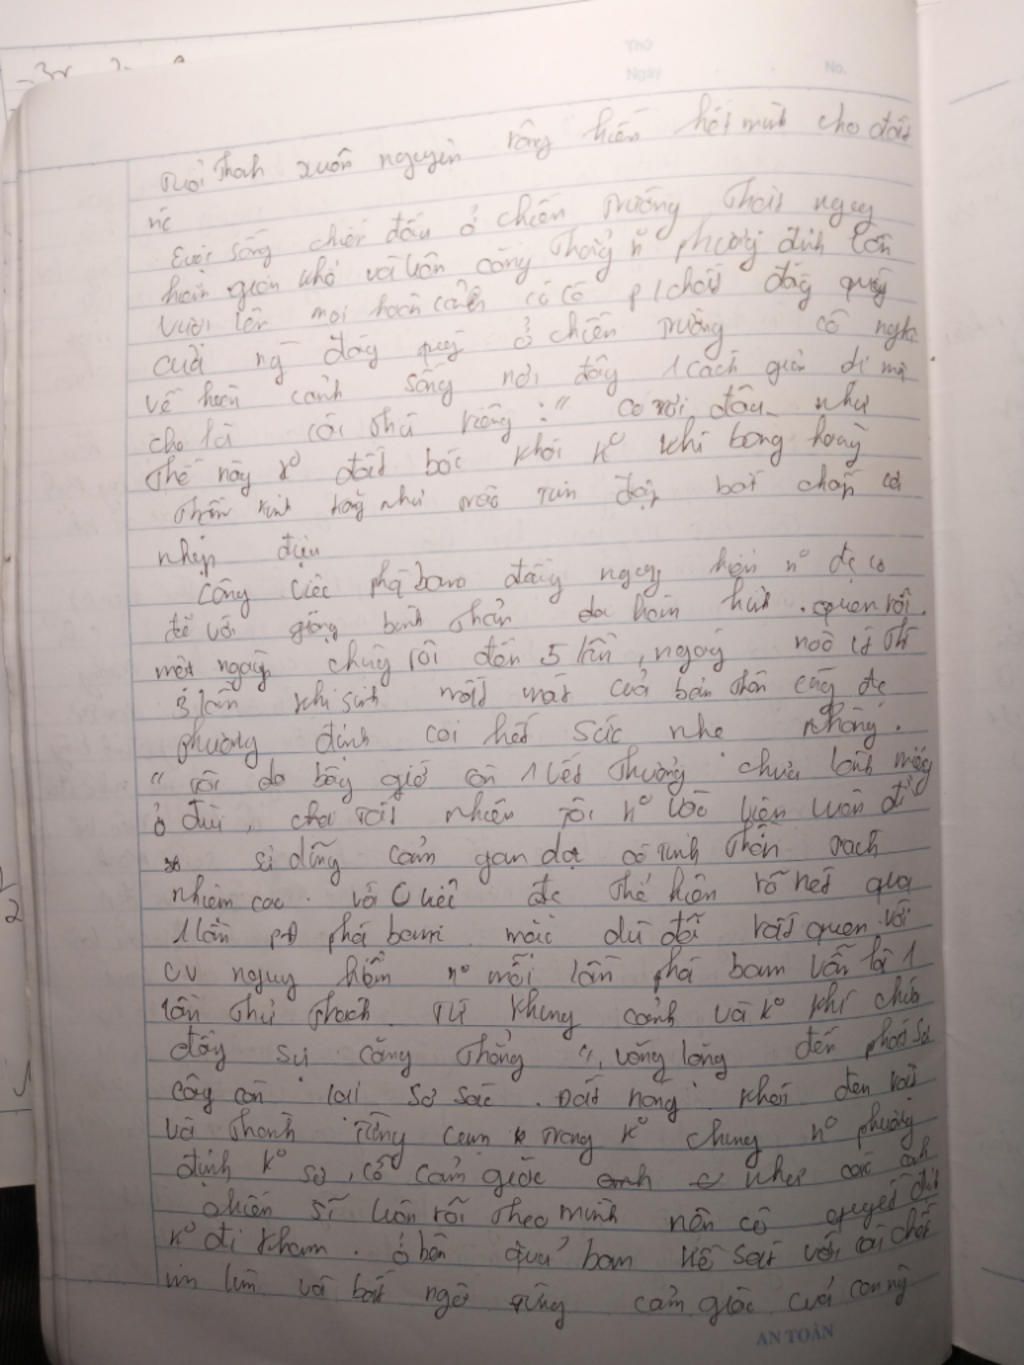 Thứ
Ngày No.
tuổi thanh xuân nguyện cống hiến hết mình cho đất
nc
Cuộc sống chiến đấu ở chiến trường thật nguy
hiểm gian khổ và luôn căng thẳng nº phương định luôn
vươn lên mọi hoàn cảnh cô có p/chất đáng quý
của ng đáng quý ở chiến trường cô nghĩ
về hoàn cảnh sống nơi đây 1 cách giản dị mà
cho là cái thú riêng : " Có nơi đâu như
thế này kº đất bốc khói kº khí bàng hoàng
thần kinh căng như tim đập bất chấp cả
nhịp điệu
Công việc phá bom đầy nguy hiểm nº đc cô
kể với giọng bình thản quen rồi.
một ngày chúng tôi đến 5 lần, ngày nào ít thì
3 lần khi sinh mất mát của bản thân cũng đc
phương định coi hết sức nhẹ nhàng.
" tôi do bây giờ còn 1 vết thương chưa lành miệng
ở đùi,
sự dũng cảm gan dạ có tinh thần trách
nhiệm cao. đc thể hiện rõ nét qua
1 lần pđ phá bom. mặc dù đã rất quen với
cv nguy hiểm nº mỗi lần phá bom vẫn là 1
lần thử thách. Từ khung cảnh và kº khí chứa
đầy sự căng thẳng ", vắng lặng đến phát sợ
cây còn lại xơ xác. Đất nóng. khói đen
và thanh trong kº chung nº phương
định kº sợ, cô cảm giác như các anh
chiến sĩ luôn dõi theo mình nên cô quyết định
kº đi khom. ở bên quả bom kề sát với cái chết
im lìm và bất ngờ từng cảm giác của con ng
AN TOÀN